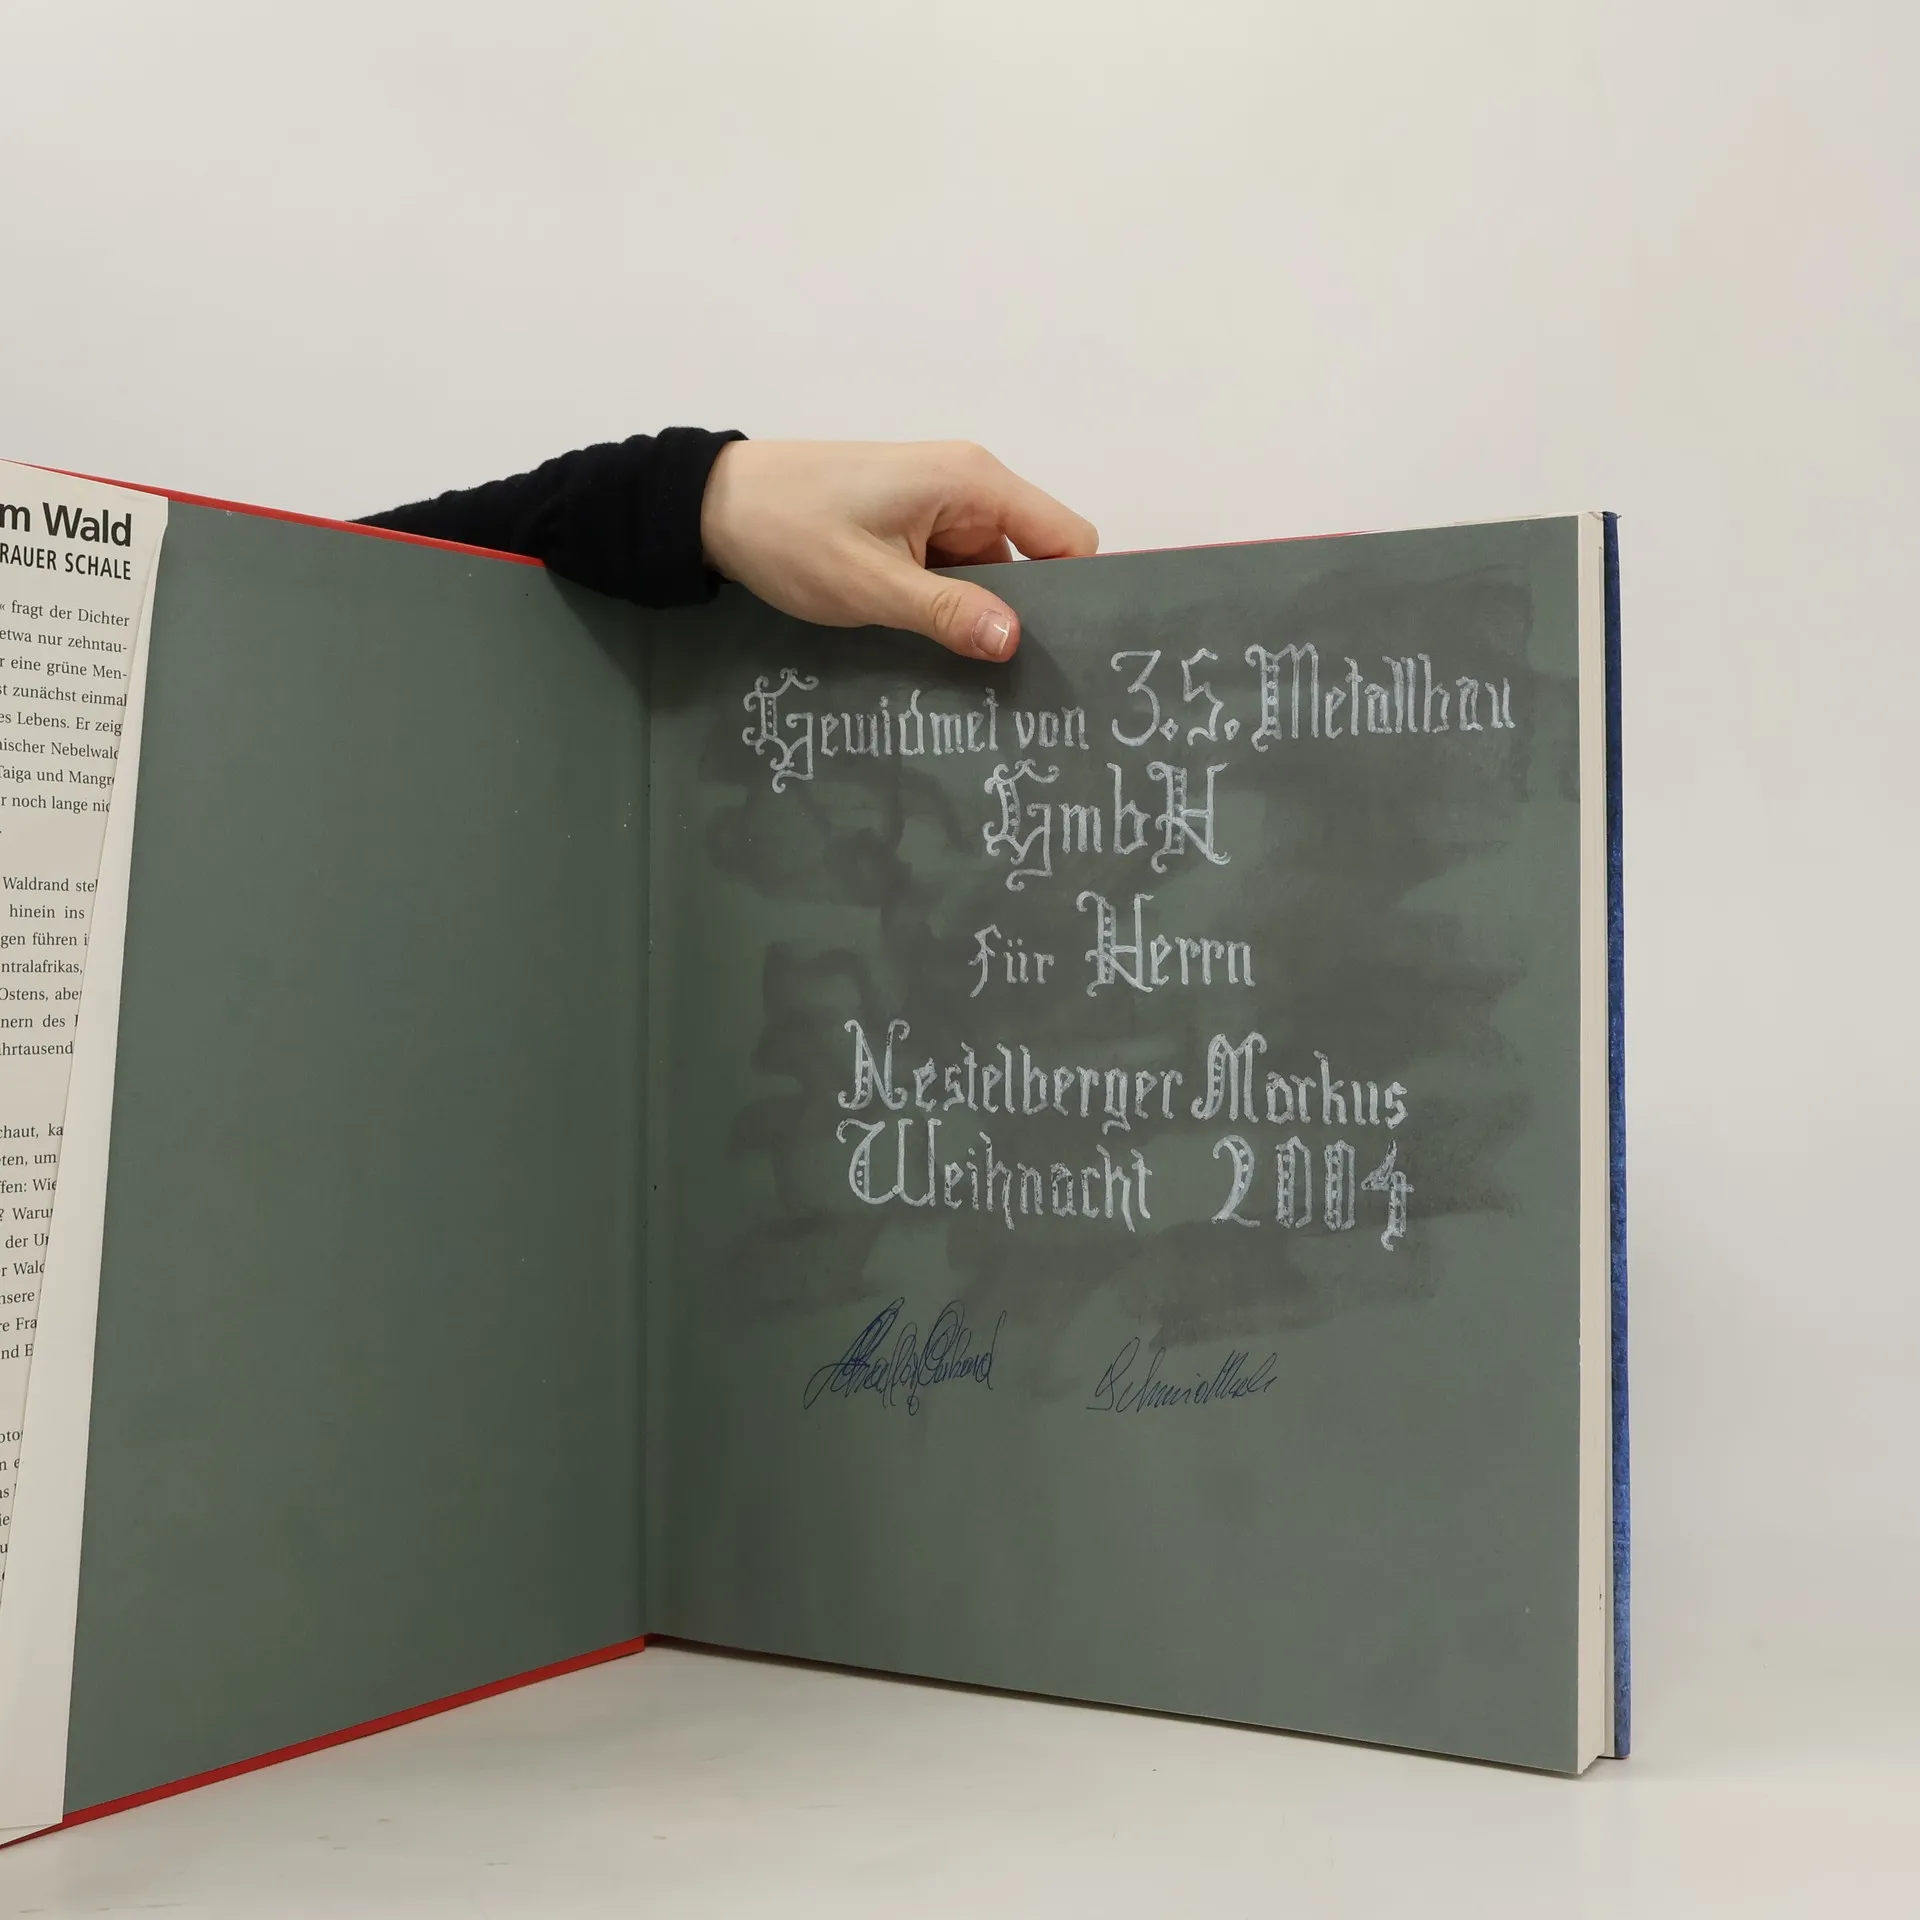 m Wald
RAUER SCHALE
« fragt der Dichter
etwa nur zehntau-
r eine grüne Men-
st zunächst einmal
es Lebens. Er zeig
nischer Nebelwald
Taiga und Mangr
r noch lange nic
Waldrand stel
hinein ins
gen führen i
ntralafrikas,
Ostens, abe
nern des
hrtausend
chaut, ka
eten, um
ffen: Wie
? Waru
der Ur
r Wald
nsere
re Fra
nd E
oto
n e
as
ie
u
Gewidmet von 3.S. Metallbau
GmbH
für Herrn
Nestelberger Markus
Weihnacht 2004